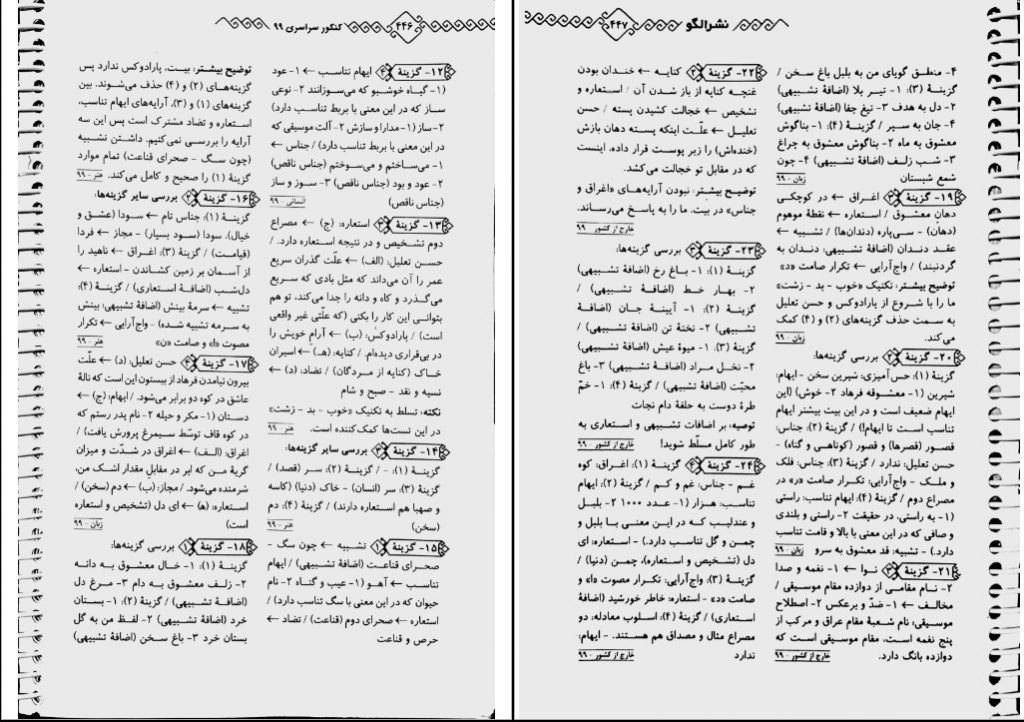 ۴۴۶ کنکور سراسری ۹۹
۱۲- گزینهٔ ۴ ایهام تناسب ← ۱- عود
(۱- گیاه خوشبو که می‌سوزانند ۲- نوعی
ساز که در این معنی با بربط تناسب دارد)
۲- ساز (۱- مدارا و سازش ۲- آلت موسیقی که
در این معنی با بربط تناسب دارد) / جناس ←
۱- می‌ساختم و می‌سوختم (جناس ناقص)
۲- عود و بود (جناس ناقص) ۳- سوز و ساز
(جناس ناقص) انسانی - ۹۹
۱۳- گزینهٔ ۳ استعاره: (ج) ← مصراع
دوم تشخیص و در نتیجه استعاره دارد. /
حسن تعلیل: (الف) ← علّت گذران سریع
عمر را آن می‌داند که مثل بادی که سریع
می‌گذرد و کاه و دانه را جدا می‌کند، تو هم
بتوانی این کار را بکنی (که علّتی غیر واقعی
است) / پارادوکس: (ب) ← آرام خویش را
در بی‌قراری دیده‌ام. / کنایه: (هـ) ← اسیران
خاک (کنایه از مردگان) / تضاد: (د) ←
نسیه و نقد - صبح و شام
نکته: تسلط به تکنیک «خوب - بد - زشت»
در این تست‌ها کمک‌کننده است. هنر - ۹۹
۱۴- گزینهٔ ۳ بررسی سایر گزینه‌ها:
گزینهٔ (۱): - / گزینهٔ (۲): سر (قصد) /
گزینهٔ (۳): سر (انسان) - خاک (دنیا) (کاسه
و صهبا هم استعاره دارند) / گزینهٔ (۴): دم
(سخن) هنر - ۹۹
۱۵- گزینهٔ ۱ تشبیه ← چون سگ -
صحرای قناعت (اضافهٔ تشبیهی) / ایهام
تناسب ← آهو (۱- عیب و گناه ۲- نام
حیوان که در این معنی با سگ تناسب دارد) /
استعاره ← صحرای دوم (قناعت) / تضاد ←
حرص و قناعت
توضیح بیشتر: بیت، پارادوکس ندارد پس
گزینه‌های (۲) و (۴) حذف می‌شوند. بین
گزینه‌های (۱) و (۳)، آرایه‌های ایهام تناسب،
استعاره و تضاد مشترک است پس این سه
آرایه را بررسی نمی‌کنیم. داشتن تشبیه
(چون سگ - صحرای قناعت) تمام موارد
گزینهٔ (۱) را صحیح و کامل می‌کند. هنر - ۹۹
۱۶- گزینهٔ ۲ بررسی سایر گزینه‌ها:
گزینهٔ (۱): جناس تام ← سودا (عشق و
خیال)، سودا (سود بسیار) - مجاز ← فردا
(قیامت) / گزینهٔ (۳): اغراق ← ناهید را
از آسمان بر زمین کشاندن - استعاره ←
دل‌شب (اضافهٔ استعاری) / گزینهٔ (۴):
تشبیه ← سرمهٔ بینش (اضافهٔ تشبیهی: بینش
به سرمه تشبیه شده) - واج‌آرایی ← تکرار
مصوت «ا» و صامت «ن» هنر - ۹۹
۱۷- گزینهٔ ۴ حسن تعلیل: (د) ← علّت
بیرون نیامدن فرهاد از بیستون این است که نالهٔ
عاشق در کوه دو برابر می‌شود. / ایهام: (ج) ←
دستان (۱- مکر و حیله ۲- نام پدر رستم که
در کوه قاف توسّط سیمرغ پرورش یافت) /
اغراق: (الف) ← اغراق در شدّت و میزان
گریهٔ من که ابر در مقابلِ مقدار اشک من،
شرمنده می‌شود. / مجاز: (ب) ← دم (سخن) /
استعاره: (ه) ← ای دل (تشخیص و استعاره
است) زبان - ۹۹
۱۸- گزینهٔ ۱ بررسی گزینه‌ها:
گزینهٔ (۱): ۱- خال معشوق به دانه
۲- زلف معشوق به دام ۳- مرغ دل
(اضافهٔ تشبیهی) / گزینهٔ (۲): ۱- بستان
خرد (اضافهٔ تشبیهی) ۲- لفظ من به گل
بستان خرد ۳- باغ سخن (اضافهٔ تشبیهی)
نشرالگو ۴۴۷
۴- منطق گویای من به بلبل باغ سخن /
گزینهٔ (۳): ۱- تیر بلا (اضافهٔ تشبیهی)
۲- دل به هدف ۳- تیغ جفا (اضافهٔ تشبیهی)
۴- جان به سپر / گزینهٔ (۴): ۱- بناگوش
معشوق به ماه ۲- بناگوش معشوق به چراغ
۳- شب زلف (اضافهٔ تشبیهی) ۴- چون
شمع شبستان زبان - ۹۹
۱۹- گزینهٔ ۳ اغراق ← در کوچکی
دهان معشوق / استعاره ← نقطهٔ موهوم
(دهان) - سی‌پاره (دندان‌ها) / تشبیه ←
عقد دندان (اضافهٔ تشبیهی: دندان به
گردنبند) / واج‌آرایی ← تکرار صامت «د»
توضیح بیشتر: تکنیک «خوب - بد - زشت»
ما را با شروع از پارادوکس و حسن تعلیل
به سمت حذف گزینه‌های (۲) و (۴) کمک
می‌کند. زبان - ۹۹
۲۰- گزینهٔ ۲ بررسی گزینه‌ها:
گزینهٔ (۱): حس‌آمیزی: شیرین سخن - ایهام:
شیرین (۱- معشوقه فرهاد ۲- خوش) (این
ایهام ضعیف است و در این بیت بیشتر ایهام
تناسب است تا ایهام!) / گزینهٔ (۲): جناس:
قصور (قصرها) و قصور (کوتاهی و گناه) -
حسن تعلیل: ندارد / گزینهٔ (۳): جناس: فلک
و ملک - واج‌آرایی: تکرار صامت «ر» در
مصراع دوم / گزینهٔ (۴): ایهام تناسب: راستی
(۱- به راستی، در حقیقت ۲- راستی و بلندی
و صافی که در این معنی با بالا و قامت تناسب
دارد.) - تشبیه: قد معشوق به سرو زبان - ۹۹
۲۱- گزینهٔ ۳ نوا ← ۱- نغمه و صدا
۲- نام مقامی از دوازده مقام موسیقی /
مخالف ← ۱- ضدّ و برعکس ۲- اصطلاح
موسیقی: نام شعبهٔ مقام عراق و مرکب از
پنج نغمه است، مقام موسیقی است که
دوازده بانگ دارد. خارج از کشور - ۹۹
۲۲- گزینهٔ ۲ کنایه ← خندان بودن
غنچه کنایه از باز شدن آن / استعاره و
تشخیص ← خجالت کشیدن پسته / حسن
تعلیل ← علّت اینکه پسته دهان بازش
(خنده‌اش) را زیر پوست قرار داده، اینست
که در مقابل تو خجالت می‌کشد.
توضیح بیشتر: نبودن آرایه‌های «اغراق و
جناس» در بیت، ما را به پاسخ می‌رساند.
خارج از کشور - ۹۹
۲۳- گزینهٔ ۳ بررسی گزینه‌ها:
گزینهٔ (۱): ۱- باغ رخ (اضافهٔ تشبیهی)
۲- بهار خط (اضافهٔ تشبیهی) /
گزینهٔ (۲): ۱- آیینهٔ جان (اضافهٔ
تشبیهی) ۲- تختهٔ تن (اضافهٔ تشبیهی) /
گزینهٔ (۳): ۱- میوهٔ عیش (اضافهٔ تشبیهی)
۲- نخل مراد (اضافهٔ تشبیهی) ۳- باغ
محبّت (اضافهٔ تشبیهی) / گزینهٔ (۴): ۱- خمّ
طرهٔ دوست به حلقهٔ دام نجات
توصیه: بر اضافات تشبیهی و استعاری به
طور کامل مسلّط شوید! خارج از کشور - ۹۹
۲۴- گزینهٔ ۴ گزینهٔ (۱): اغراق: کوه
غم - جناس: غم و کم / گزینهٔ (۲): ایهام
تناسب: هزار (۱- عدد ۱۰۰۰ ۲- بلبل
و عندلیب که در این معنی با بلبل و
چمن و گل تناسب دارد.) - استعاره: ای
دل (تشخیص و استعاره)، چمن (دنیا) /
گزینهٔ (۳): واج‌آرایی: تکرار مصوت «ا» و
صامت «د» - استعاره: خاطر خورشید (اضافهٔ
استعاری) / گزینهٔ (۴): اسلوب معادله: دو
مصراع مثال و مصداق هم هستند. - ایهام:
ندارد خارج از کشور - ۹۹